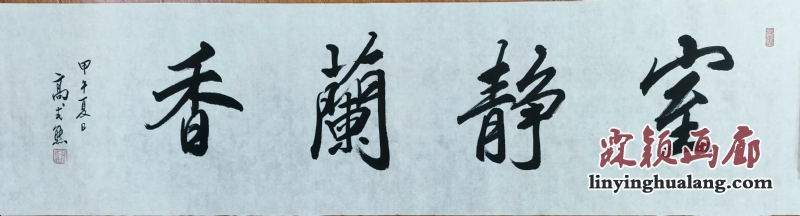 室靜蘭香
甲午夏日
高式熊
霖颖画廊
linyinghualang.com